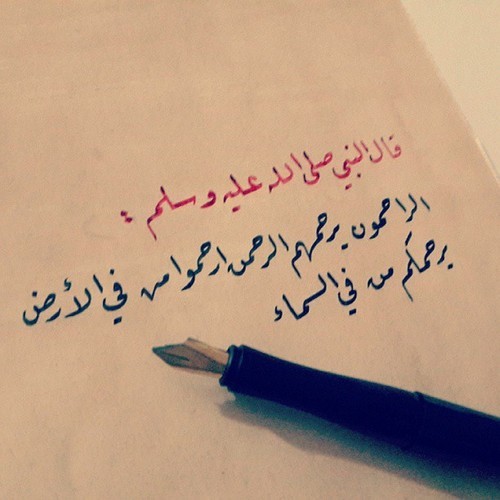 قال النبي صلى الله عليه وسلم :
الراحمون يرحمهم الرحمن ارحموا من في الأرض
يرحمكم من في السماء